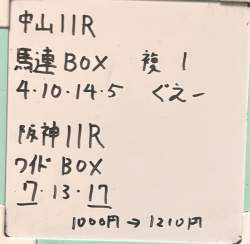 中山11R
馬連BOX 複 1
4・10・14・5 ぐえー
阪神11R
ワイドBOX
7・13・17
1000円→1210円